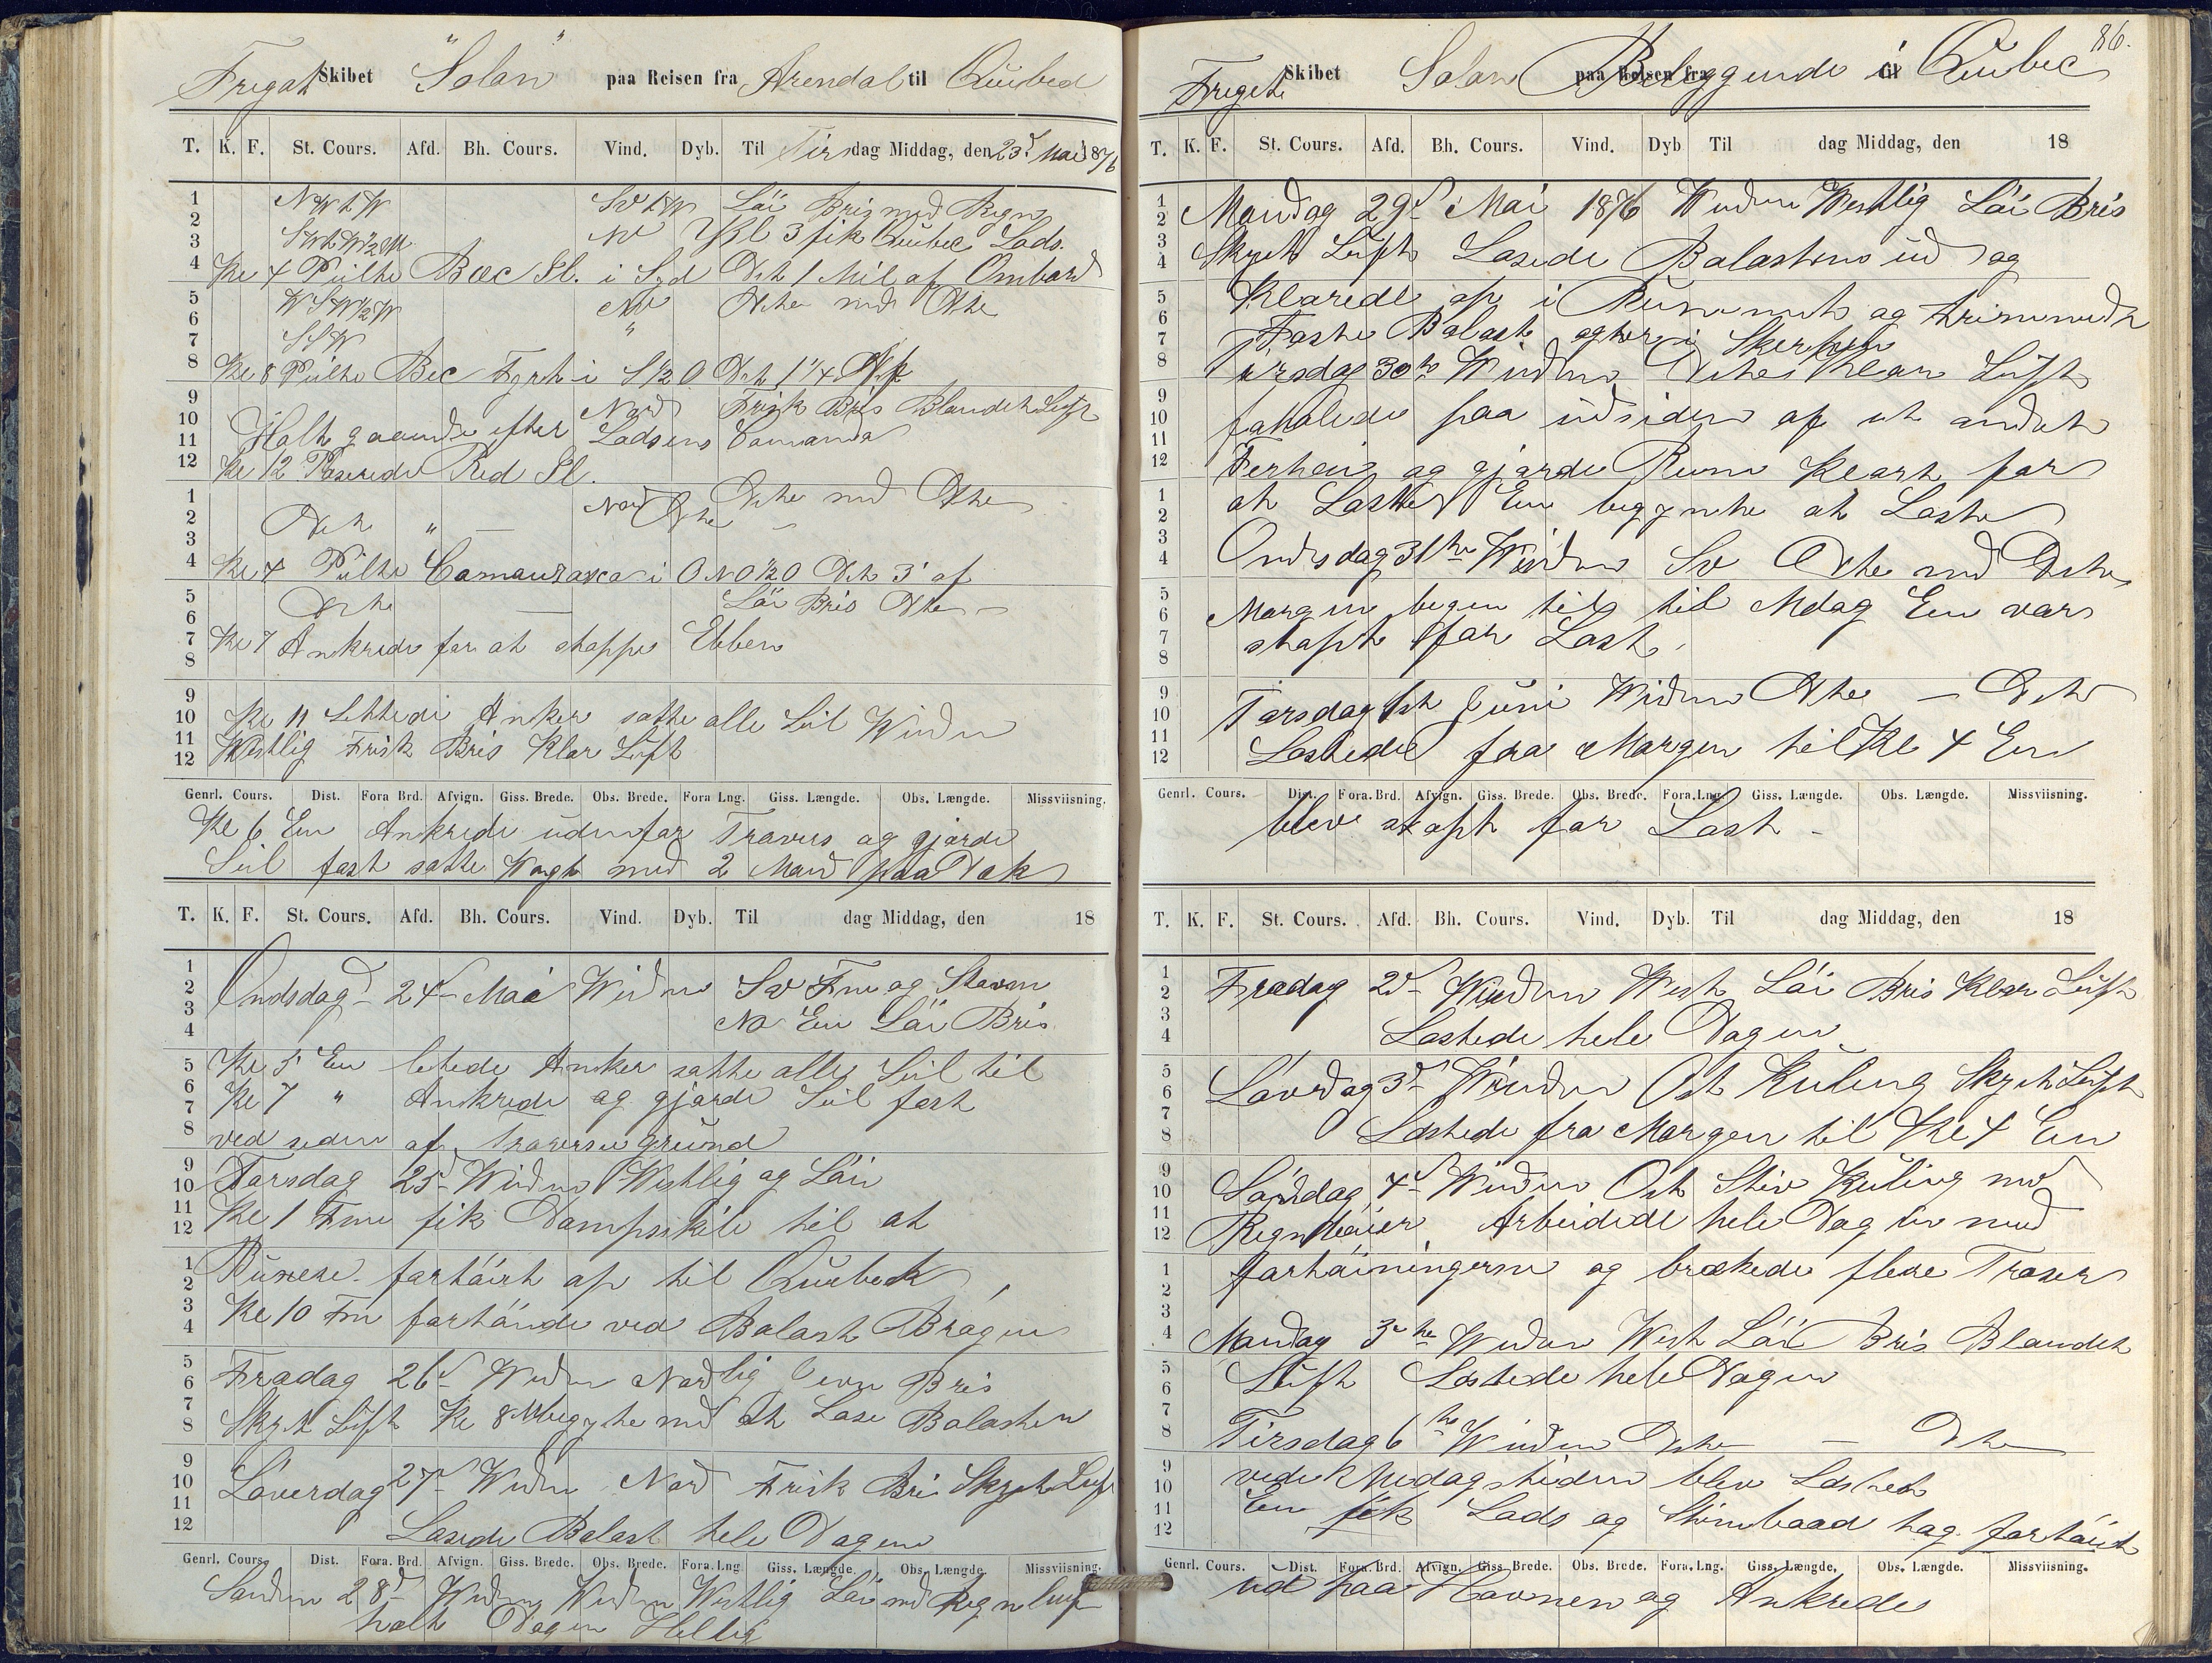 Fregat Skibet "Solon" paa Reisen fra Arendal til Quebed
T. K. F. St. Cours. Afd. Bh. Cours. Vind. Dyb. Til Tirsdag Middag, den 23d Mai 1876
1 NWtW SvtW Löi Bris med Regn
2 No Kl 3 fik Quebec Lods.
3
4 Kl 4 Peilte Bec Sl. i Syd Dst 1 Mil af Ombord
5 WSW½W No Dtto md Dtto
6 "
7 SSW
8 Kl 8 Peilte Bec Fyrt i S½O Dst 1¼ Af
9 Nord Frisk Bris Blandet Luft
10 Holt gaaende efter Lodsens Comando
11
12 Kl 12 Paserede Red Sl.
1 Nord Dtto Dtto md Dtto
2 Dtto " —
3
4 Kl 4 Peilte Camaurasca i ONO½O Dst 3' af
5 Dtto — Löi Bris Dtto —
6
7 Kl 7 Ankrede for at stoppe Ebben
8
9
10 Kl 11 Lettede Anker satte alle Seil Winden
11 Westlig Frisk Bris Klar Luft
12
Genrl. Cours. Dist. Fora Brd. Afvign. Giss. Brede. Obs. Brede. Fora Lng. Giss. Længde. Obs. Længde. Missviisning.
Kl 6 Em Ankrede udenfor Travers og gjorde
Seil fast satte Wagt med 2 Mand paa Dæk
T. K. F. St. Cours. Afd. Bh. Cours. Vind. Dyb. Til dag Middag, den 18
1
2 Ondsdag 24d Mai Winden Sv Fm og Stævn
3
4 No Em Löi Bris
5 Kl 5 Em letede Anker satte alle Seil til
6
7 Kl 7 " Ankrede og gjorde Seil fast
8 ved siden af Traverse grund
9
10 Torsdag 25d Winden Westlig og Löi
11
12 Kl 1 Fm fik Dampskib til at
1
2 Buxere fortöiet op til Quebeck
3
4 Kl 10 Fm fortöiede ved Balast Brögen
5
6 Fredag 26d Winden Nordlig jevn Bris
7
8 Skyet Luft Kl 8 M begynte md at Lose Balasten
9
10 Löverdag 27d Winden Nord Frisk Bri Skyet Luft
11
12 Losede Balast hele Dagen
Genrl. Cours. Dist. Fora. Brd. Afvign. Giss. Brede. Obs. Brede. Fora. Lng. Giss. Længde. Obs. Længde. Missviisning.
Sönden 28d Winden Winden Westlig Löi md Regn luft
holt Dagen Hellig
86.
Fregat Skibet Solon paa Reisen fra Beleggende til i Quebec
T. K. F. St. Cours. Afd. Bh. Cours. Vind. Dyb Til dag Middag, den 18
1
2 Mandag 29d Mai 1876 Winden Westlig Löi Bris
3
4 Skyet Luft Losede Balasten ud og
5 Klarede op i Rummet og trimmede
6
7 Faste Balast agter i Skerpen
8 Tirsdag 30te Winden Dtto Klar Luft
9
10 forhalede paa udsiden af et andet
11
12 Fertöi og gjorde Rum Klart for
1
2 at Laste Em begynte at Laste
3
4 Ondsdag 31te Winden Sv Dtto md Dtto
5
6 Morgen begen til Mdag Em var
7 stopt for Last.
8
9
10 Torsdag 1ste Juni Winden Dtto — Dtto
11
12 Lastede fra Morgen til Kl 4 Em
Genrl. Cours. Dist. Fora. Brd. Afvign. Giss. Brede. Obs. Brede. Fora. Lng. Giss. Længde. Obs. Længde. Missviisning.
blev stopt for Last —
T. K. F. St. Cours. Afd. Bh. Cours. Vind. Dyb. Til dag Middag, den 18
1
2 Fredag 2d Winden West Löi Bris Klar Luft
3
4 Lastede hele Dagen
5
6 Lövrdag 3d Winden Ost Kuling Skyet Luft
7
8 Lastede fra Morgen til Kl 4 Em
9
10 Söndag 4d Winden Ost Stiv Kuling md
11
12 Regn Arbeidede hele Dagen med
1
2 fortöiningerne og brækede flere Troser
3
4 Mandag Winden West Löi Bris Blandet
5
6 Luft Lastede hele Dagen
7
8 Tirsdag 6te Winden Dtto — Dtto
9
10 vede Mdagstiden blev Lastet
11 Em fik Lods og Stimbaad tog fortöiet
12
Genrl. Cours. Dist. Fora. Brd. Afvign. Giss. Brede. Obs. Brede. Fora. Lng. Giss. Længde. Obs. Længde. Missviisning.
ud paa Havnen og Ankrede